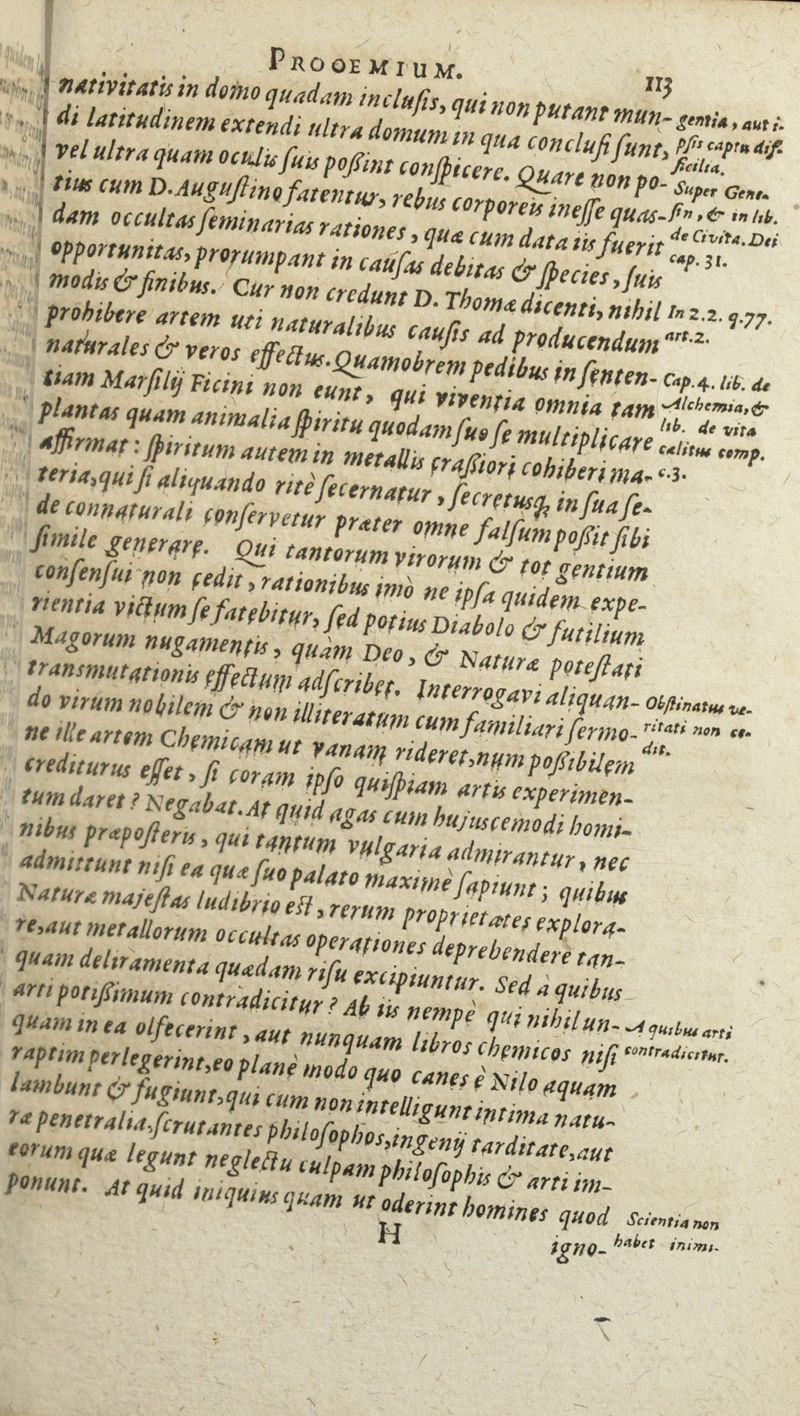 PROOEMIUM. 113
nativitatis in domo quadam inclusis, qui non putant mun-
di latitudinem extendi ultra domum in qua conclusi sunt,
vel ultra quam oculis suis possint conspicere. Quare non po-
tius cum D. Augustino fatentur, rebus corporeis inesse quas-
dam occultas seminarias rationes, quæ cum data iis fuerit
opportunitas, prorumpant in causas debitas & species, suis
modis & finibus. Cur non credunt D. Thomæ dicenti, nihil
prohibere artem uti naturalibus causis ad producendum
naturales & veros effectus. Quamobrem pedibus in senten-
tiam Marsilij Ficini non eunt, qui viventia omnia tam
plantas quam animalia spiritu quodam suo se multiplicare
affirmat: spiritum autem in metallis crassiori cohiberi ma-
teria, qui si aliquando ritè secernatur, secretusq; in sua se-
de connaturali conservetur præter omne falsum possit sibi
simile generare. Qui tantorum virorum & tot gentium
consensui non cedit, rationibus imò ne ipsa quidem expe-
rientia victum se fatebitur, sed potius Diabolo & futilium
Magorum nugamentis, quàm Deo, & Naturæ potestati
transmutationis effectum adscribet. Interrogavi aliquan-
do virum nobilem & non illiteratum cum familiari sermo-
ne ille artem Chemicam ut vanam rideret, num possibilem
crediturus esset, si coram ipso quispiam artis experimen-
tum daret? Negabat. At quid agas cum hujuscemodi homi-
nibus præposteris, qui tantum vulgaria admirantur, nec
admittunt nisi ea quæ suo palato maximè sapiunt; quibus
Naturæ majestas ludibrio est, rerum proprietates explora-
re, aut metallorum occultas operationes deprehendere tan-
quam deliramenta quædam risu excipiuntur. Sed à quibus
arti potissimum contradicitur? Ab iis nempè qui nihil un-
quam in ea olfecerint, aut nunquam libros chemicos nisi
raptim perlegerint, eo planè modo quo canes è Nilo aquam
lambunt & fugiunt, qui cum non intelligunt intima natu-
ræ penetralia, scrutantes philosophos, ingenij tarditate, aut
eorum quæ legunt neglectu culpam philosophis & arti im-
ponunt. At quid iniquius quam ut oderint homines quod
H
igno-
gentia, aut i-
psis captu dif-
ficilia.
Super Gene-
sin, & in lib.
de Civita. Dei
cap. 31.
In 2.2. q.77.
art.2.
Cap.4. lib. de
Alchemia, &
lib. de vita
cælitus comp.
c.3.
Obstinatus ve-
ritati non ce-
dit.
A quibus arti
contradicitur.
Scientia non
habet inimi-